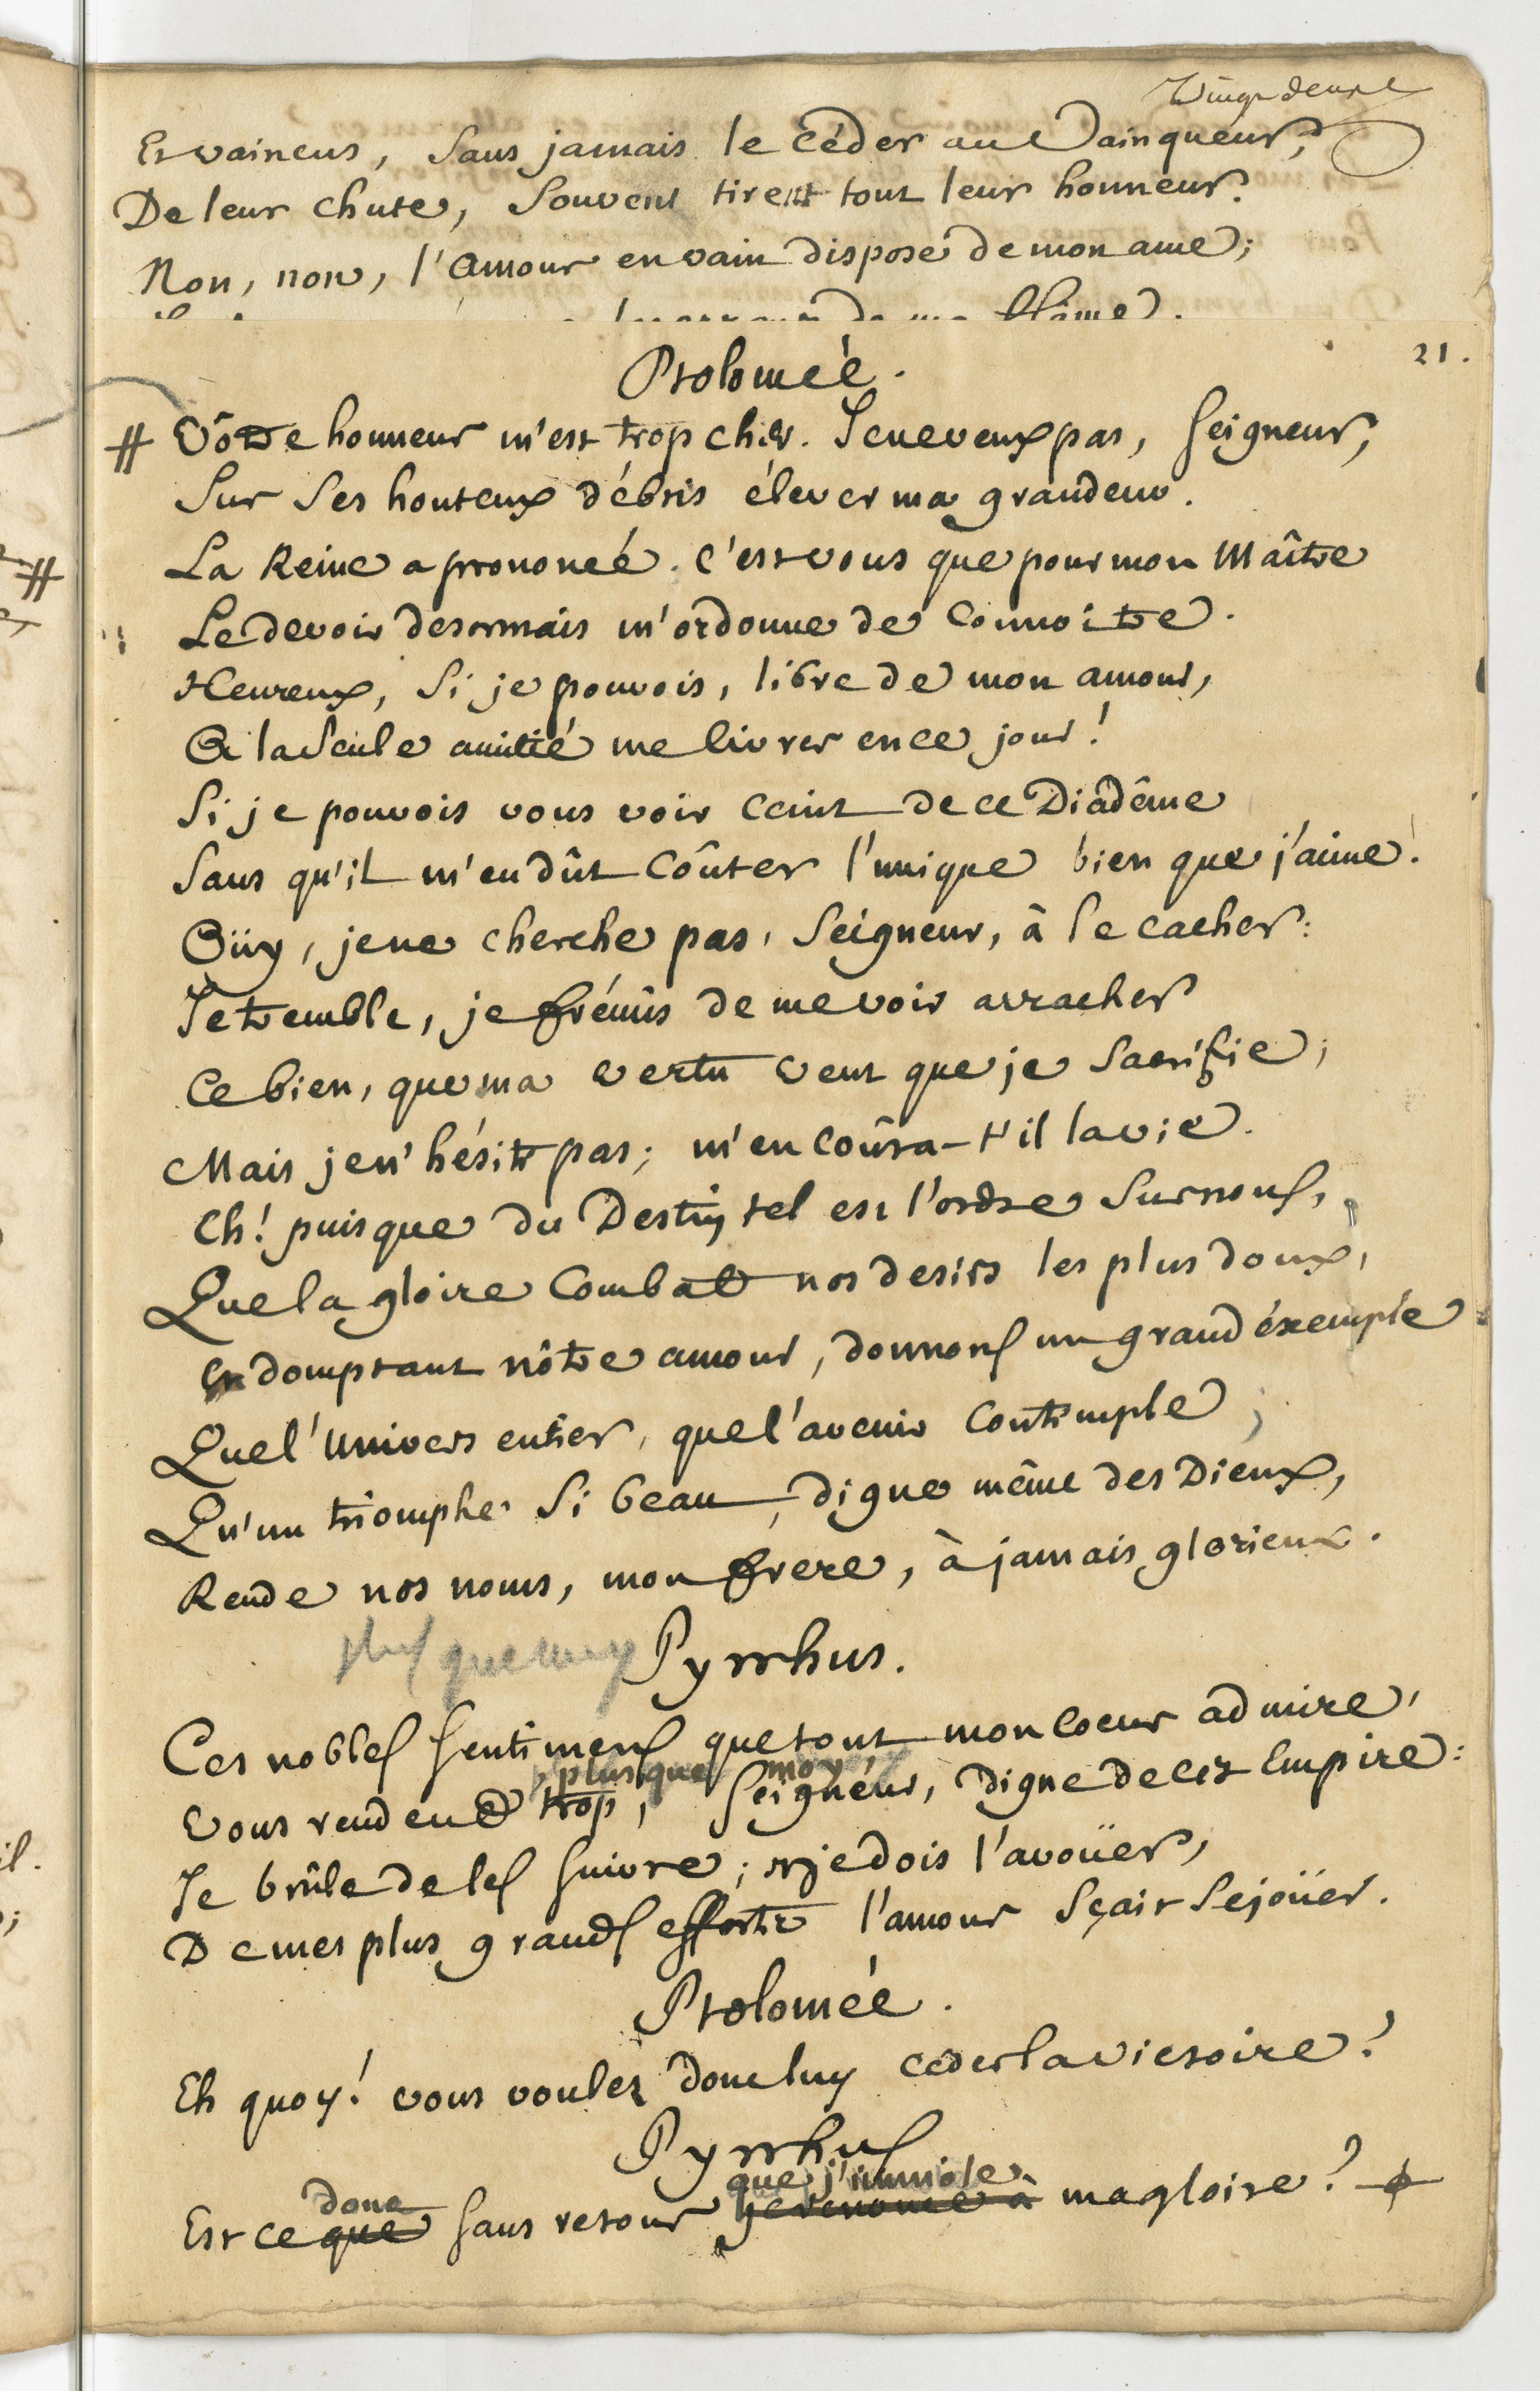 Vingt deuxe
Et vaincus, sans jamais le céder au Vainqueur,
De leur chute, souvent tirent tout leur honneur.
Non, non, l'Amour en vain dispose de mon ame;
de ma flâme.
21.
Ptolomée.
# Vôtre honneur m'est trop cher. Je ne veux pas, Seigneur,
Sur ses honteux débris élever ma grandeur.
La Reine a prononcé. C'est vous que pour mon Maître
Le devoir desormais m'ordonne de Connoitre.
Heureux, Si je pouvois, libre de mon amour,
A la seule amitié me livrer en ce jour!
Si je pouvois vous voir Ceint de ce Diâdême
Sans qu'il m'en dût Coûter l'unique bien que j'aime!
Oüy, je ne cherche pas, Seigneur, à le cacher:
Je tremble, je frémis de me voir arracher
Ce bien, que ma vertu veut que je sacrifie;
Mais je n'hésite pas; m'en Coûta-t'il la vie.
Eh! puisque du Destin tel est l'ordre sur nous,
Que la gloire Combat nos desirs les plus doux,
En domptant nôtre amour, donnons un grand éxemple
Que l'Univers entier, que l'avenir Contemple;
Qu'un triomphe si beau, digne même des Dieux,
Rende nos noms, mon frere, à jamais glorieux.
plus que moy
Pyrrhus.
Ces nobles sentimens que tout mon coeur admire,
plus que moy
Vous rendent trop, Seigneur, digne de cet Empire:
Je brûle de les suivre; et je dois l'avoüer,
De mes plus grands efforts l'amour sçait se joüer.
Ptolomée.
Eh quoy! vous voulez donc luy ceder la victoire?
Pyrrhus
donc que j'immole
Est ce que sans retour je renonce à ma gloire?